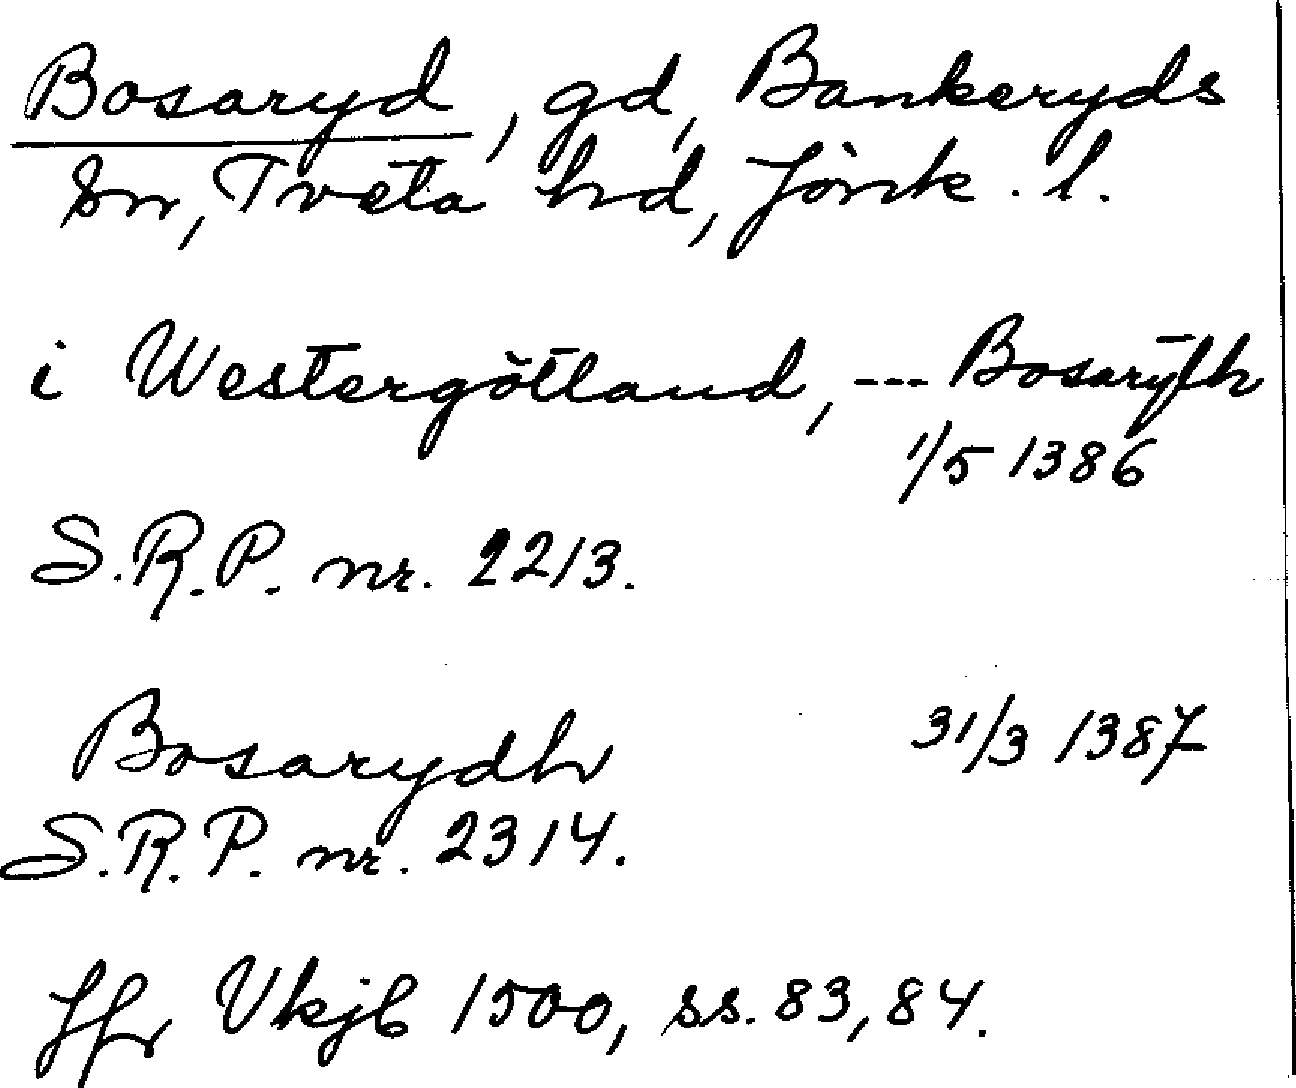 Bosaryd, gd, Bankeryds
sn, Tveta hd, Jönk. l.
i Westergötland, --- Bosaryþh
1/5 1386
S.R.P. nr. 2213.
Bosarydh 31/3 1387
S.R.P. nr. 2314.
Jfr Vkjb 1500, ss. 83, 84.